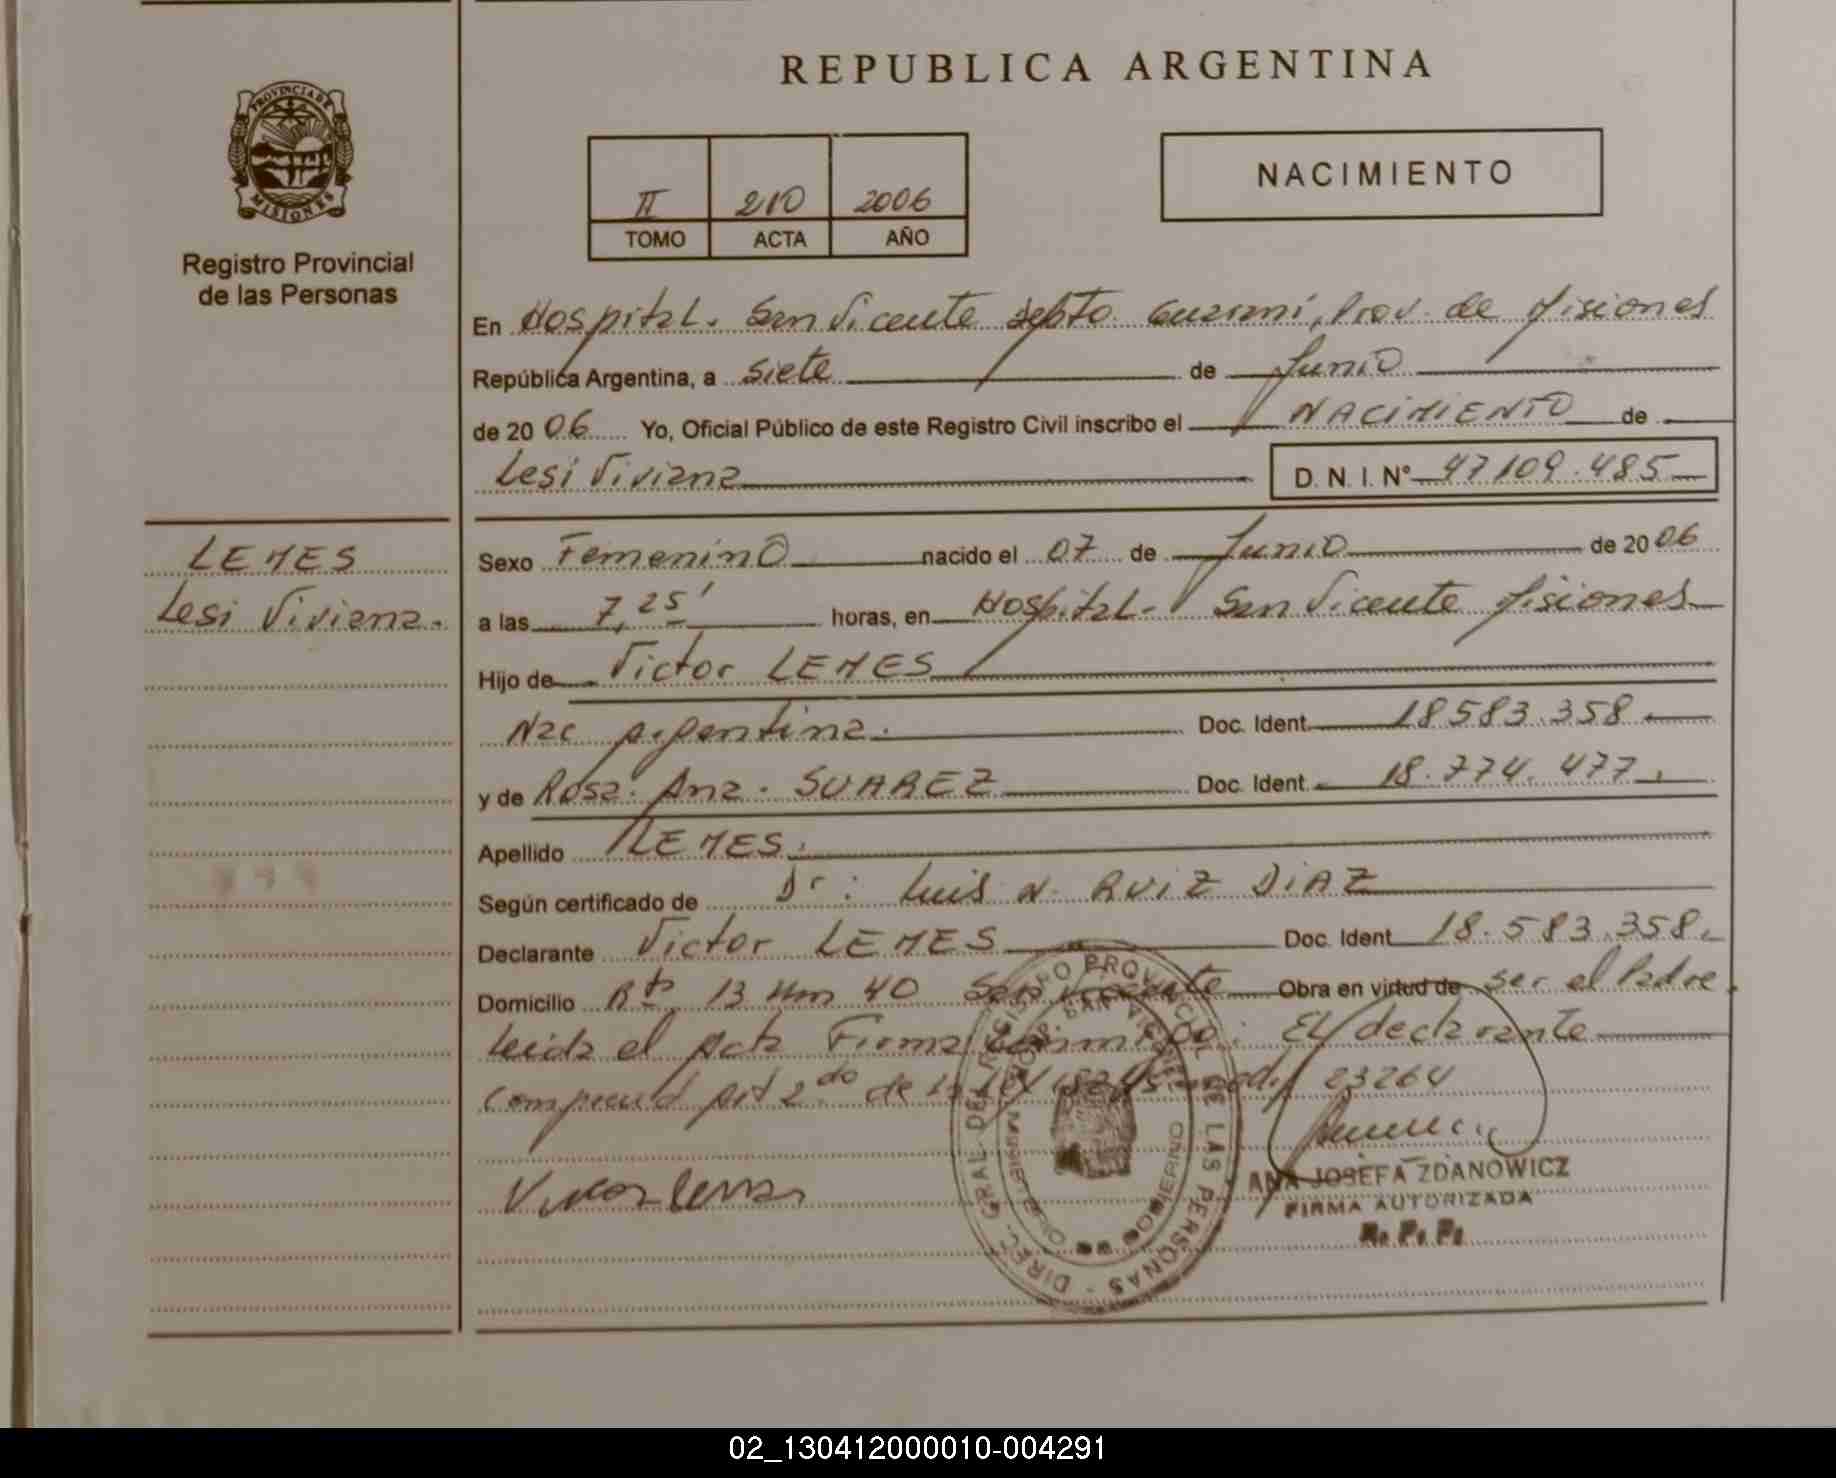 REPUBLICA ARGENTINA
PROVINCIA DE
MISIONES
Registro Provincial
de las Personas
II 210 2006
TOMO ACTA AÑO
NACIMIENTO
En Hospital. San Vicente Depto Guarani, Prov. de Misiones
República Argentina, a siete de Junio
de 2006 Yo, Oficial Público de este Registro Civil inscribo el NACIMIENTO de
Lesi Viviana D. N. I. Nº 47109.485
LEMES
Lesi Viviana.
Sexo Femenino nacido el 07 de Junio de 2006
a las 7,25' horas, en Hospital. San Vicente Misiones
Hijo de Victor LEMES
Nac Argentina. Doc. Ident. 18583.358
y de Rosa. Ana. SUAREZ Doc. Ident. 18.774.477.
Apellido LEMES.
Según certificado de Dr: Luis N. RUIZ DIAZ
Declarante Victor LEMES Doc. Ident. 18.583.358.
Domicilio Rta 13 Km 40 San Vicente Obra en virtud de ser el Padre
Leida el Acta Firma conmigo: El declarante
comprend Art 2do de la Ley 18248 mod. 23264
DIREC. GRAL DEL REGISTRO PROVINCIAL DE LAS PERSONAS
HOSP. SAN VICENTE
ANA JOSEFA ZDANOWICZ
FIRMA AUTORIZADA
R. P. P.
02_130412000010-004291